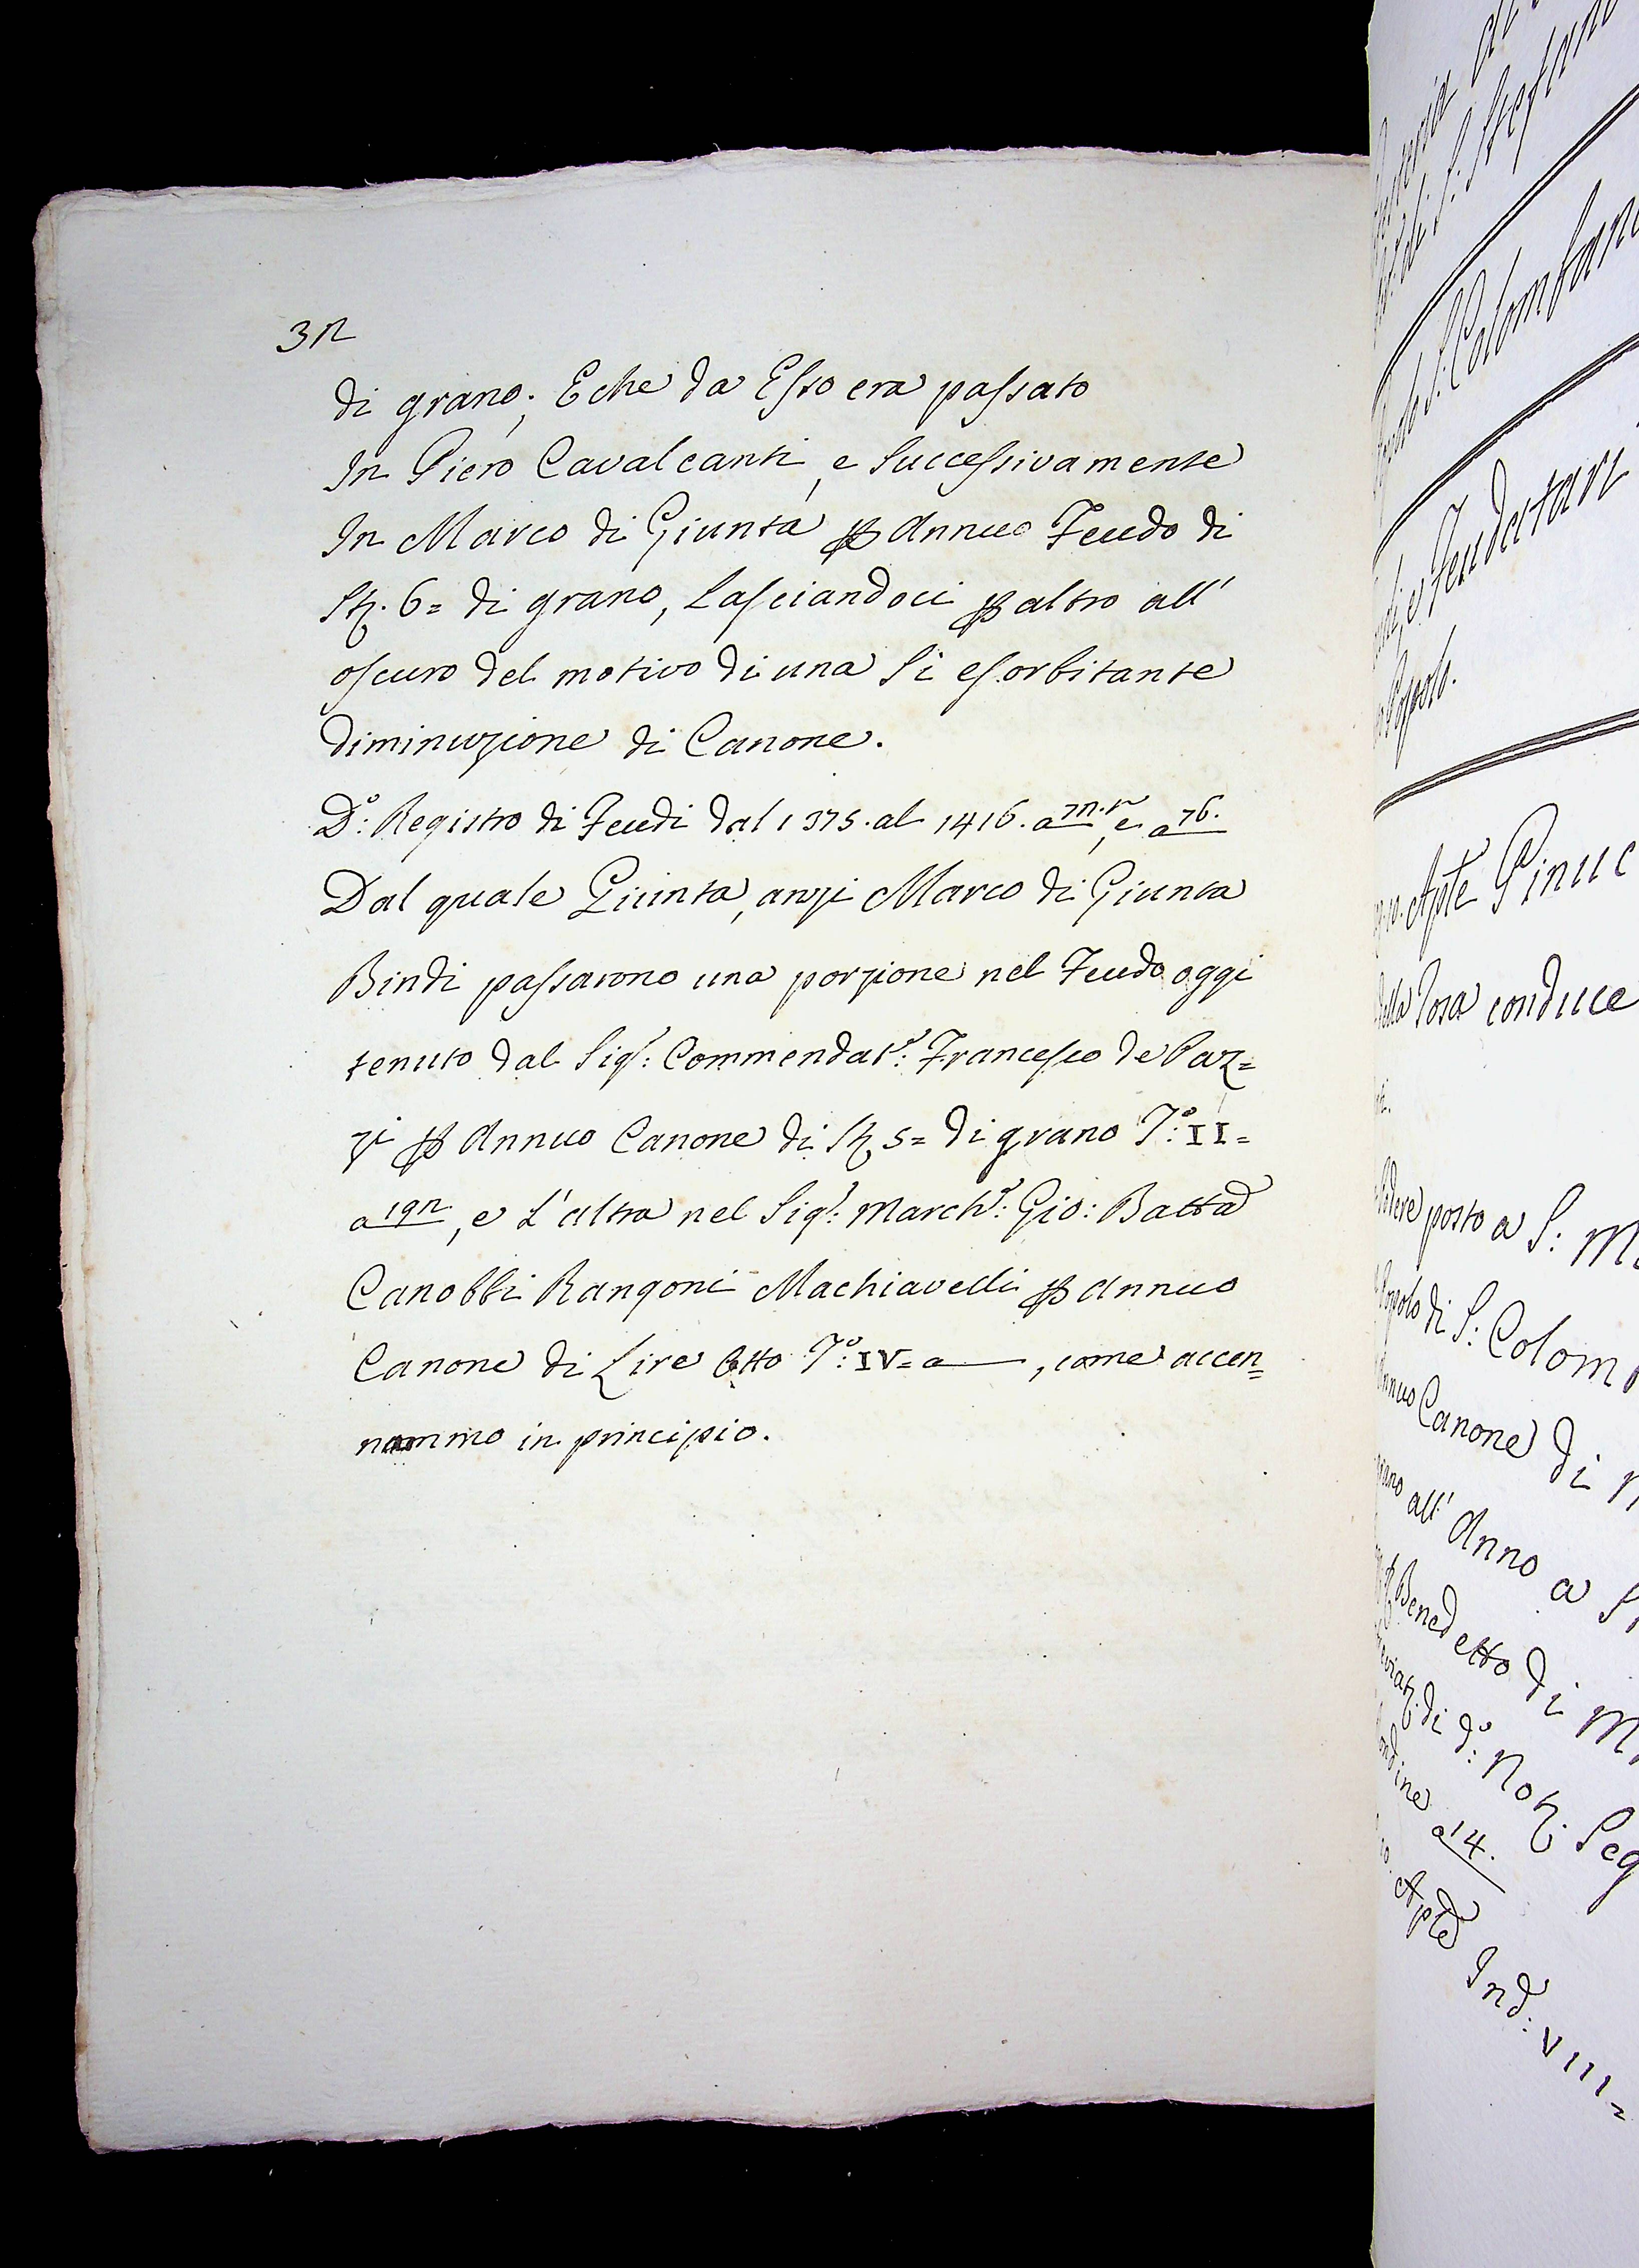 32
di grano; E che da Esso era passato
In Piero Cavalcanti, e Successivamente
In Marco di Giunta ꝑ Annuo Feudo di
St. 6= di grano, Lasciandoci ꝑ altro all'
oscuro del motivo di una Si esorbitante
Diminuzione di Canone.
D.º: Registro di Feudi dal 1375. al 1416. a 72.t, e a 76.
Dal quale Giunta, anzi Marco di Giunta
Bindi passarono una porzione nel Feudo oggi
tenuto dal Sig.r: Commendat.r: Francesco de Paz=
zi ꝑ Annuo Canone di St 5= di grano T.º: II=
a 192, e L'altra nel Sig.r: March.e: Gio: Batta
Canobbi Rangoni Machiavelli ꝑ Annuo
Canone di Lire Otto T.º: IV= a ——, come accen=
nammo in principio.
S: Colombano
e Feudatari
Popolo.
Apte Pinuc
della Tosa conduce
Podere posto a S: M
Popolo di S: Colom
Annuo Canone di
grano all' Anno a
Benedetto di M
di d.º: Not. Seg
a 14.
Apte Ind: VIII=